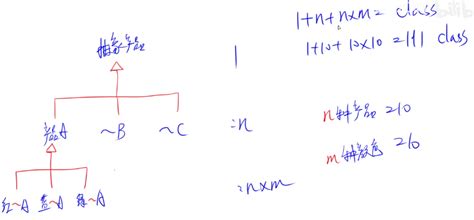 1+n+n×m= class
1+10+10×10 =111 class
抽象产品
1
产品A ~B ~C :n
n种产品 =10
m种颜色 =10
红~A 蓝~A 绿~A :n×m